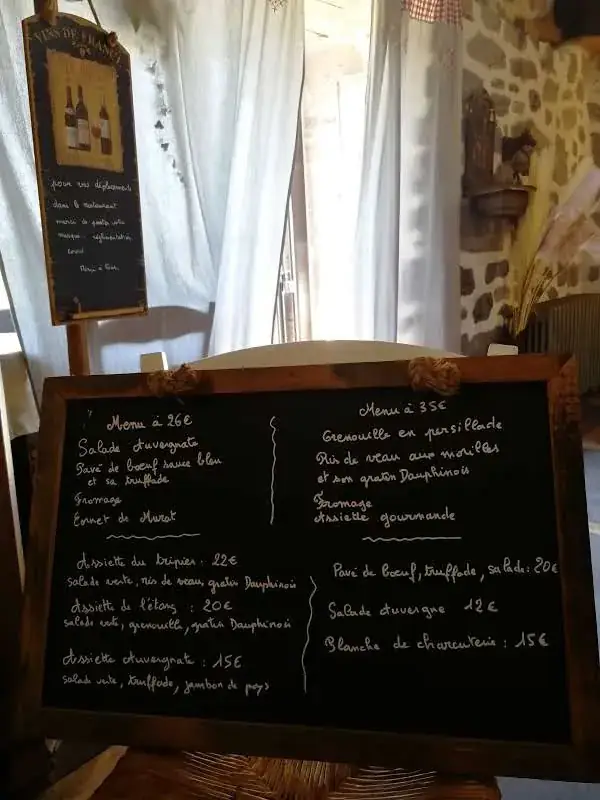 VINS DE FRANCE
pour vos déplacements
dans le restaurant
merci de porter votre
masque réglementation
covid
Menu à 26€
Salade Auvergnate
Pavé de boeuf sauce bleu
et sa truffade
Fromage
Cornet de Murat
Menu à 35€
Grenouille en persillade
Ris de veau aux morilles
et son gratin Dauphinois
Fromage
Assiette gourmande
Assiette du tripier : 22€
Salade verte, ris de veau, gratin Dauphinois
Assiette de l'étang : 20€
salade verte, grenouille, gratin Dauphinois
Assiette Auvergnate : 15€
salade verte, truffade, jambon de pays
Pavé de boeuf, truffade, salade : 20€
Salade Auvergne 12€
Planche de charcuterie : 15€